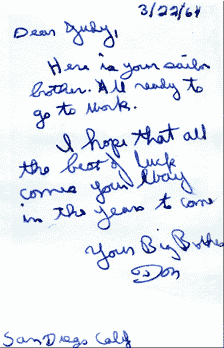 3/22/64
Dear Judy,
Here is your sailor
brother. All ready to
go to work.
I hope that all
the best of luck
comes your Way
in the years to come
Your Big Brother
Don
San Diego Calif